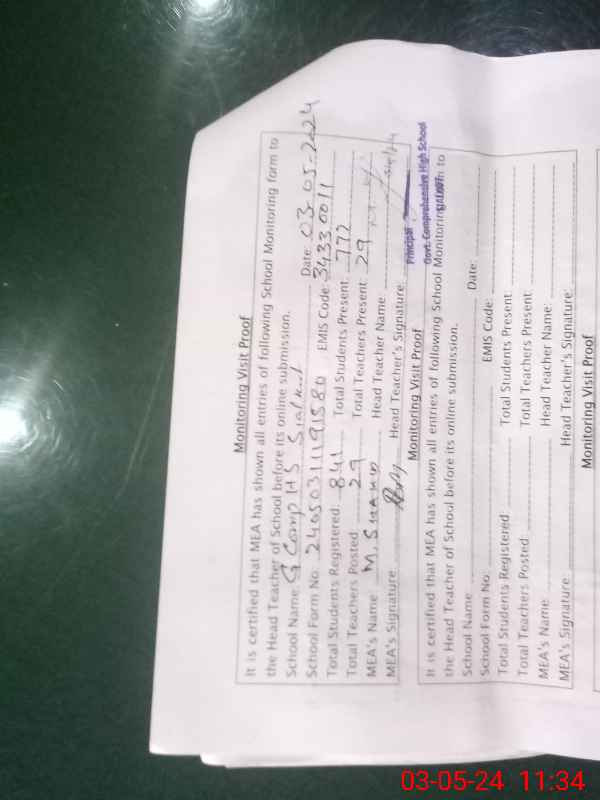 Monitoring Visit Proof
It is certified that MEA has shown all entries of following School Monitoring form to
the Head Teacher of School before its online submission.
School Name: G Comp HS Sialkot Date: 03-05-2024
School Form No: 24050311191580 EMIS Code: 34330011
Total Students Registered: 841 Total Students Present: 772
Total Teachers Posted: 29 Total Teachers Present: 29
MEA's Name M. SHAHID Head Teacher Name:
MEA's Signature: Head Teacher's Signature:
Principal
Govt. Comprehensive High School
SIALKOT
Monitoring Visit Proof
It is certified that MEA has shown all entries of following School Monitoring form to
the Head Teacher of School before its online submission.
School Name Date:
School Form No: EMIS Code:
Total Students Registered Total Students Present
Total Teachers Posted: Total Teachers Present:
MEA's Name: Head Teacher Name:
MEA's Signature: Head Teacher's Signature:
Monitoring Visit Proof
03-05-24 11:34